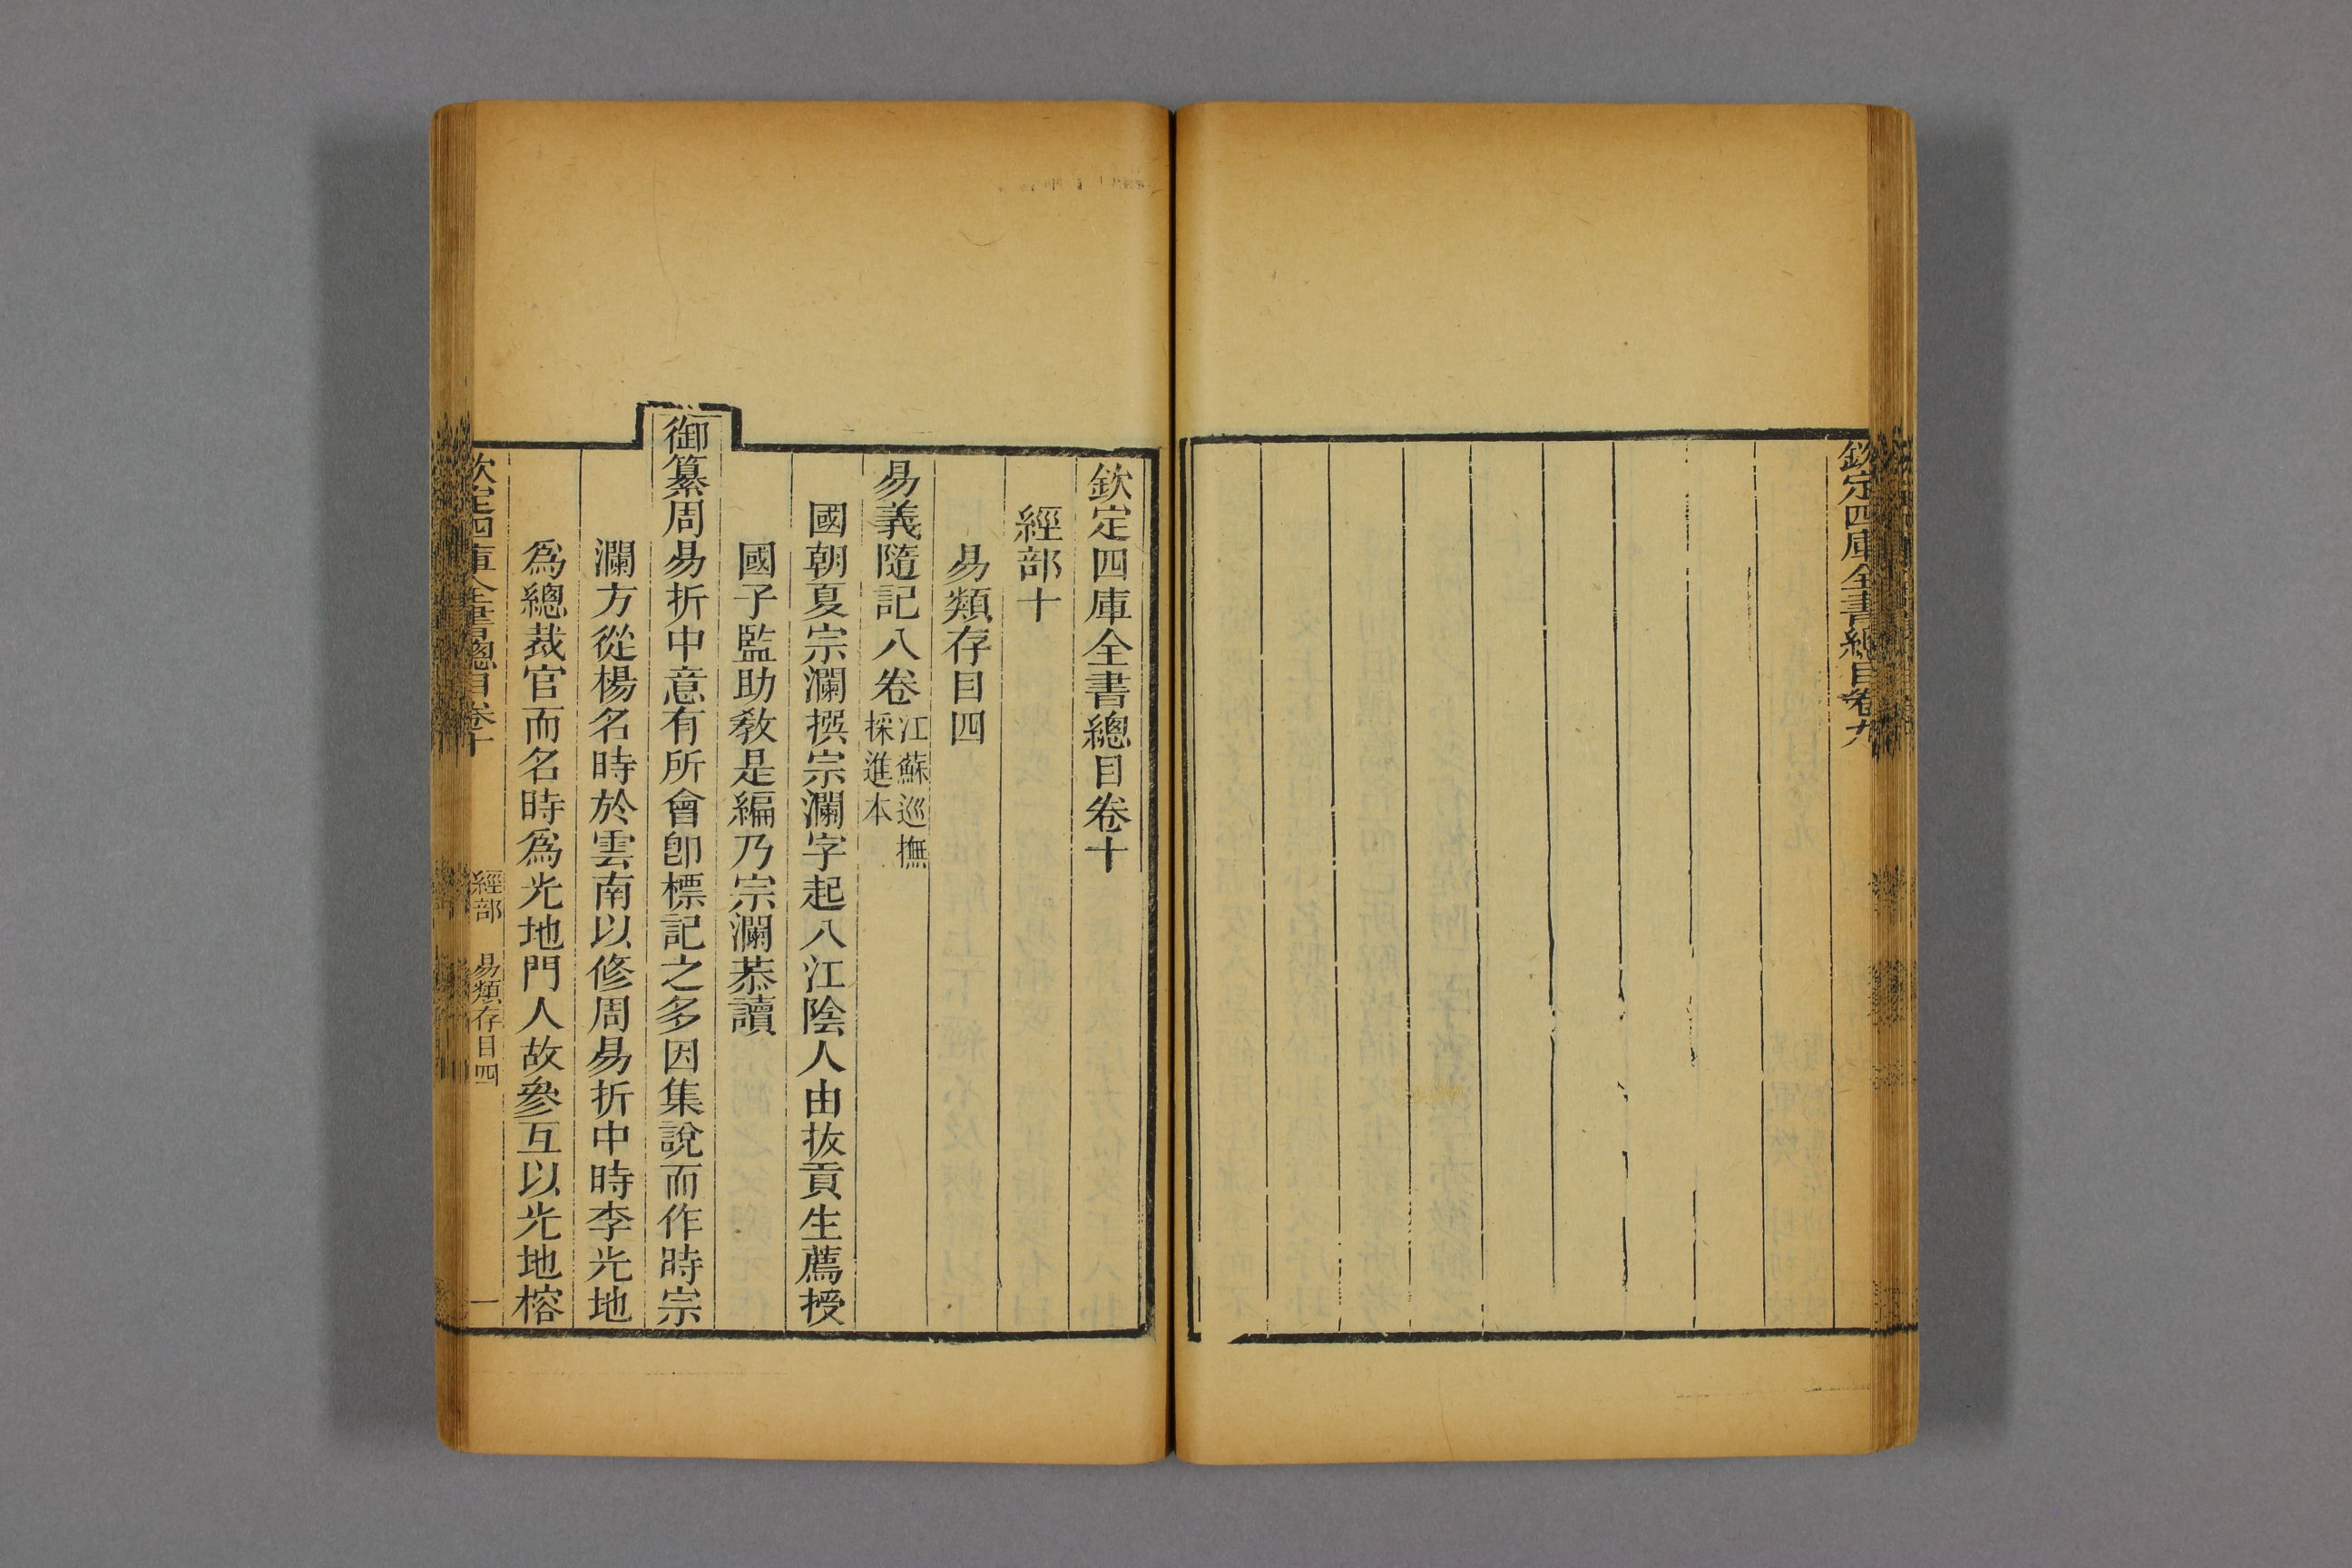 欽定四庫全書總目卷九
欽定四庫全書總目卷十
經部十
易類存目四
易義隨記八卷江蘇巡撫
採進本
國朝夏宗瀾撰宗瀾字起八江陰人由拔貢生薦授
國子監助敎是編乃宗瀾恭讀
御纂周易折中意有所會卽標記之多因集說而作時宗
瀾方從楊名時於雲南以修周易折中時李光地
爲總裁官而名時爲光地門人故參互以光地榕
欽定四庫全書總目卷十 經部 易類存目四 一